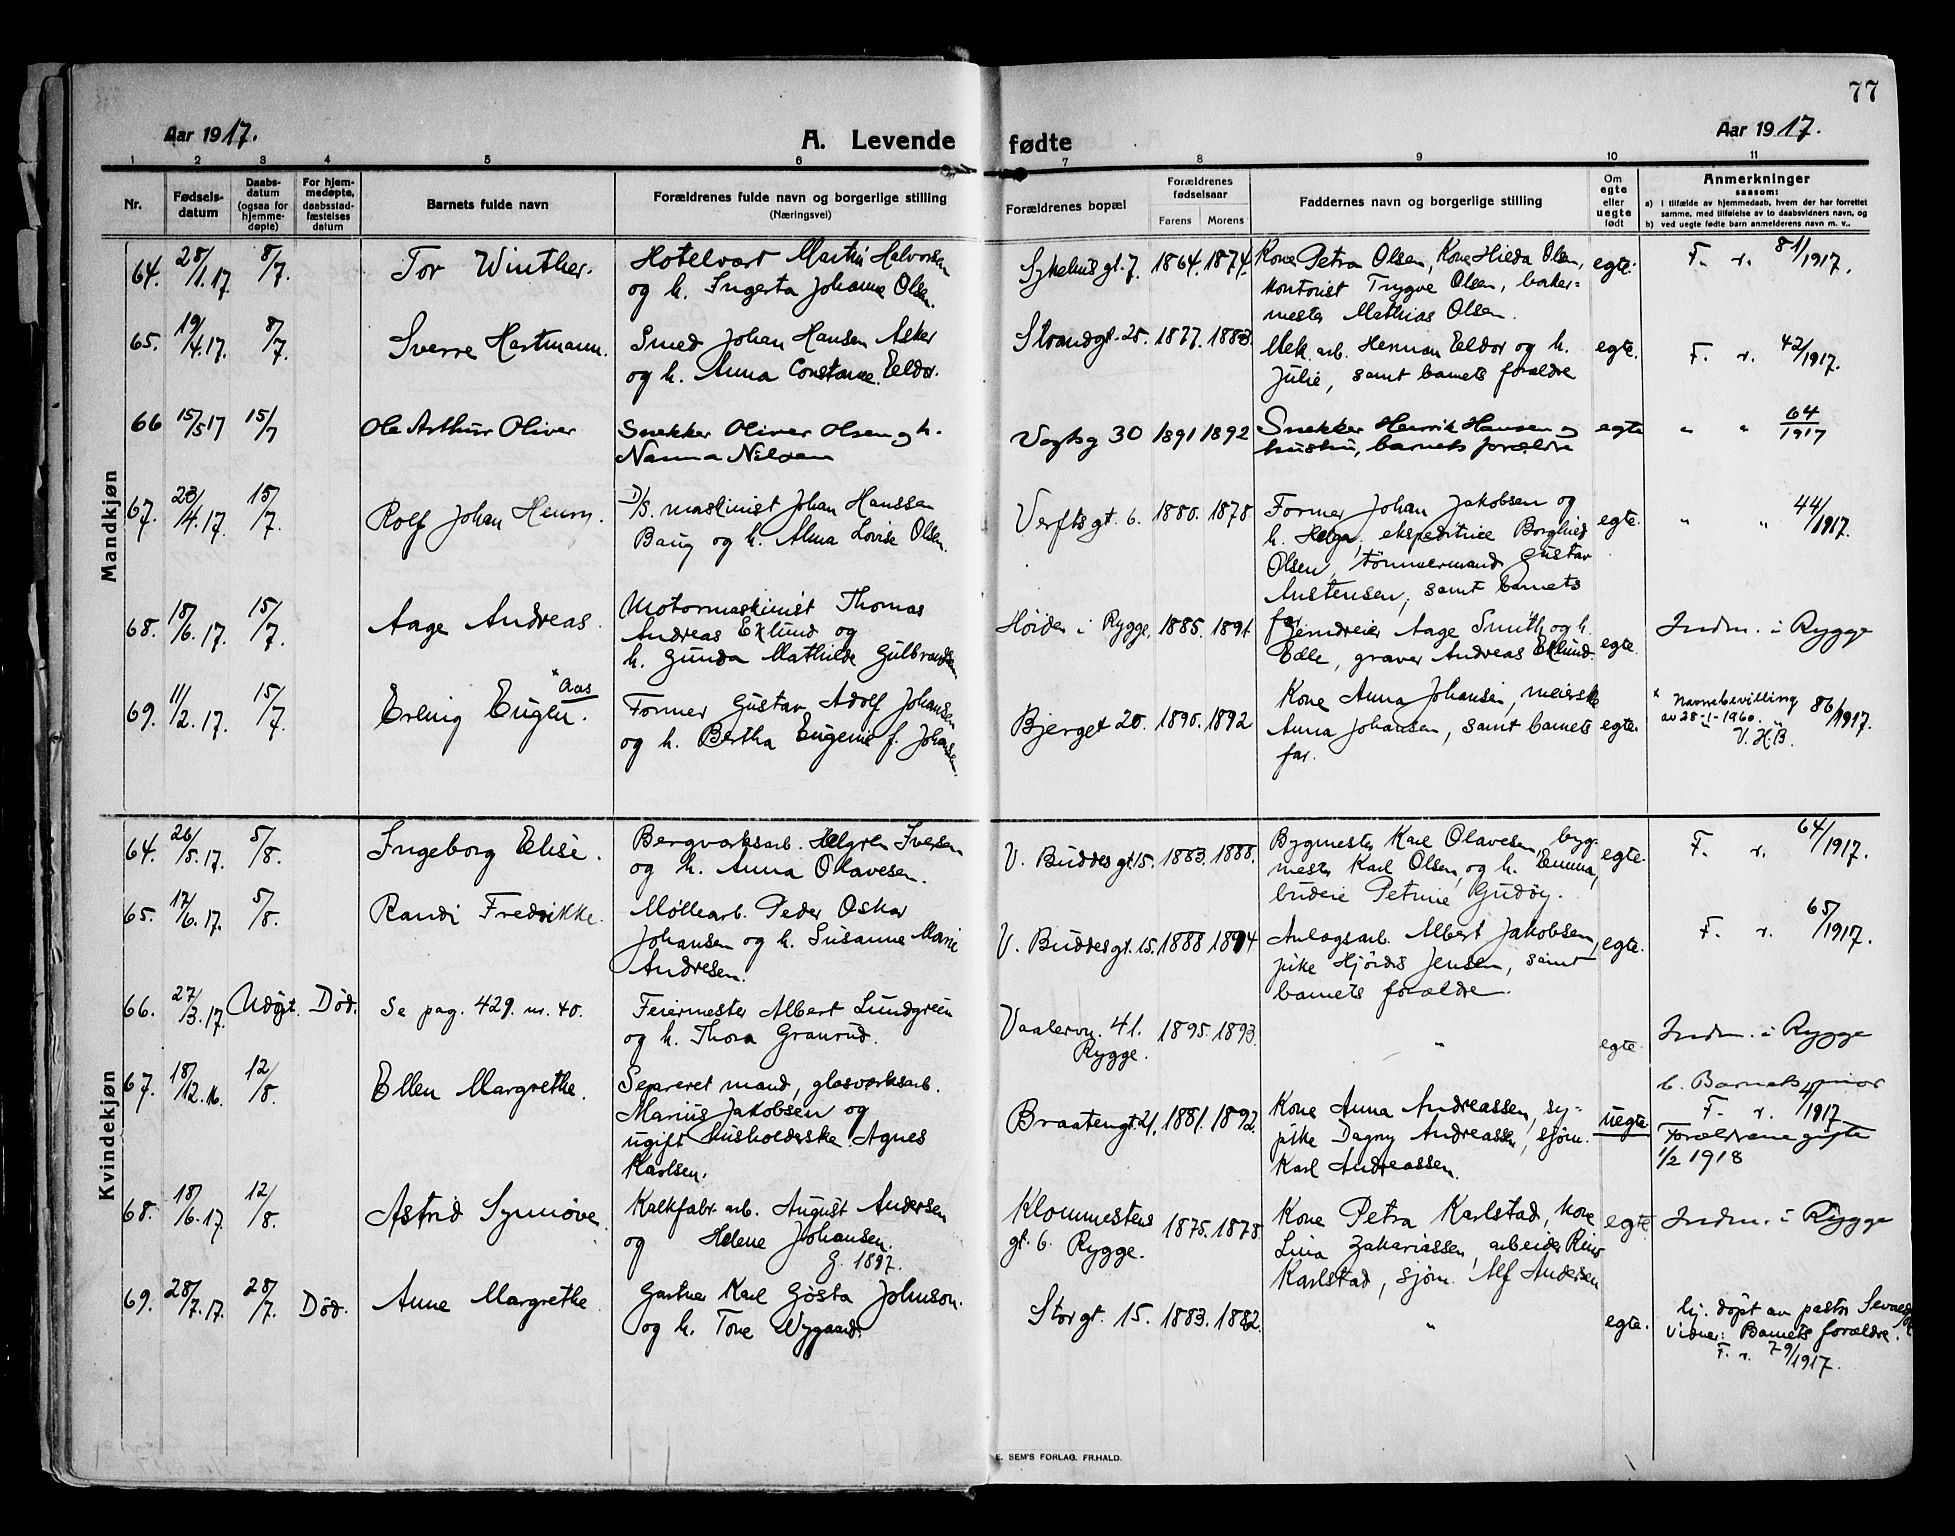 77
Aar 1917.
A. Levende fødte
Aar 1917.
1 2 3 4 5 6 7 8 9 10 11
Nr.
Fødsels-
datum
Daabs-
datum
(ogsaa for
hjemme-
døpte)
For hjem-
medøpte,
daabsstad-
fæstelses
datum
Barnets fulde navn
Forældrenes fulde navn og borgerlige stilling
(Næringsvei)
Forældrenes bopæl
Forældrenes
fødselsaar
Farens Morens
Faddernes navn og borgerlige stilling
Om
egte
eller
uegte
født
Anmerkninger
saasom:
a) i tilfælde av hjemmedaab, hvem der har forrettet
samme, med tilføielse av to daabsvidners navn, og
b) ved uegte fødte barn anmelderens navn m. v..
Mandkjøn
64. 28/1.17. 8/7. Tor Winther.
Hotelvært Martin Halvorsen
og h. Ingerta Johanne Olsen.
Sykehusgt. 7. 1864. 1874.
Kone Petra Olsen, Kone Hilda Olsen,
kontorist Trygve Olsen, baker-
mester Mathias Olsen.
egte.
F. r. 81/1917.
65. 19/4.17. 8/7. Sverre Hartmann.
Smed Johan Hansen Asker
og h. Anna Constance Eldor.
Strandgt. 25. 1877. 1883.
Mek. arb. Herman Eldor og h.
Julie, samt barnets forældre
egte.
F. r. 42/1917.
66 15/5 17 15/7 Ole Arthur Oliver
Snekker Oliver Olsen og h.
Nanna Nilsen
Vogtsg 30 1891 1892
Snekker Henrik Hansen og
hustru, barnets forældre
egte
" " 64/1917
67. 23/4.17. 15/7. Rolf Johan Henry.
D/S. maskinist Johan Hanssen
Baug og h. Alma Lovise Olsen.
Verftsgt. 6. 1880. 1878.
Former Johan Jakobsen og
h. Helga, ekspeditrice Borghild
Olsen, tømmermand Gustav
Austensen, samt barnets
far.
egte.
" " 44/1917.
68. 18/6.17. 15/7. Aage Andreas.
Motormaskinist Thomas
Andreas Eklund og
h. Gunda Mathilde Gulbrandsen
Høiden i Rygge. 1885. 1891.
Aage Smith og h.
Edle, graver Andreas Eklund.
egte.
Indm. i Rygge
69. 11/2.17. 15/7. Erling Eugen. x Aas
Former Gustav Adolf Johansen
og h. Bertha Eugenie f. Johansen.
Bjerget 20. 1890. 1892
Kone Anna Johansen, meierske
Anna Johansen, samt barnets
far.
egte.
x Navnebevilling
av 28-1-1960.
V. H. B.
86/1917.
Kvindekjøn
64. 26/5.17. 5/8. Ingeborg Elise.
Bergværksarb. Helgren Iversen
og h. Anna Olavesen.
V. Buddesgt. 15. 1883. 1888.
Bygmester Karl Olavesen, byg-
mester Karl Olsen, og h. Emma,
budeie Petrine Gudøy.
egte.
F. r. 64/1917.
65. 17/6.17. 5/8. Randi Fredrikke.
Møllearb. Peder Oskar
Johansen og h. Susanne Marie
Andresen.
V. Buddesgt. 15. 1888 1894
Anlægsarb. Albert Jakobsen,
pike Hjørdis Jensen, samt
barnets forældre.
egte.
F. r. 65/1917.
66. 27/3.17. Udøpt. Død. Se pag. 429. nr. 40.
Feiermester Albert Lundgreen
og h. Thora Granrud.
Vaalervn. 41.
Rygge.
1895. 1893.
"
egte.
Indm. i Rygge
67. 18/12.16. 12/8. Ellen Margrethe.
Separeret mand, glasværksarb.
Marius Jakobsen og
ugift husholderske Agnes
Karlsen.
Braatengt. 21. 1881. 1892.
Kone Anna Andreassen, sy-
pike Dagny Andreassen, sjøm.
Karl Andreassen.
uegte
b. Barnets mor
F. r. 4/1917
Forældrene gifte
1/2 1918
68. 18/6.17. 12/8. Astrid Synnøve.
Kalkfabr. arb. August Andersen
og Helene Johansen.
G. 1897.
Klommestens
gt. 6. Rygge.
1875. 1878.
Kone Petra Karlstad, kone
Lina Zakariassen, arbeider
Karlstad, sjøm. Alf Andersen
egte
Indm. i Rygge
69. 28/7.17. 28/7. Død. Anne Margrethe.
Gartner Karl Gösta Johnson.
og h. Tone Nygaard.
Storgt. 15. 1883. 1882.
"
egte.
hj. døpt av pastor
Vidner: Barnets forældre.
F. r. 79/1917.
E. SEM'S FORLAG. FR.HALD.